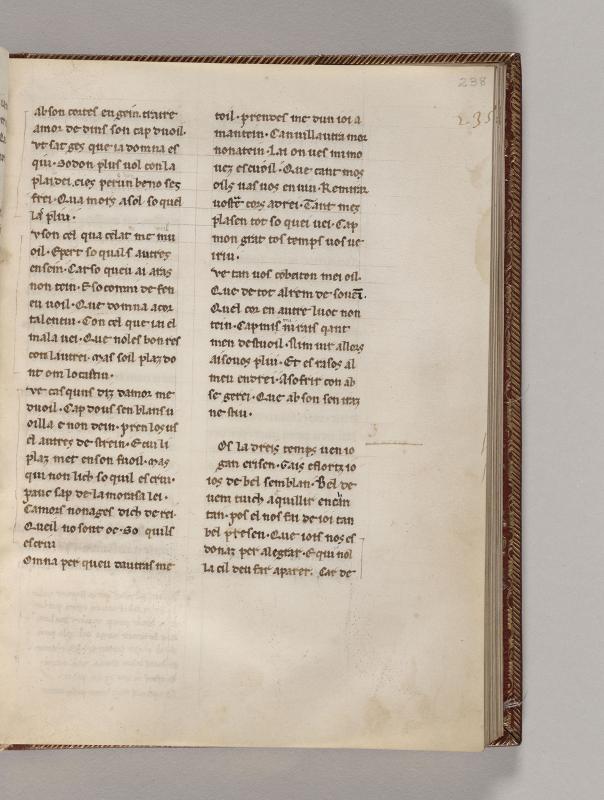 238
235
Ab son cortes en gein. traire
amor de dins son cap duoil.
Vt sat ges que ia domna es
qui. So don plus uol con la
plaidei. cies per un beno ses
frei. Qua mors a sol so quel
la pliu.
uson cel qua celat me mu
oil. Epert so quals autres
ensein. Car so queu ai aras
non tein. Eso comm de fen
eu uoil. Que domna acor
talentiu. Con cel que iai el
mala uei. Que noles bon res
con lautrei. mas soil plaz do
nt om lo castiu.
ue casquns diz damor me
duoil. Cap dous sen blans u
oilla e non dein. pren los us
el autres de strein. Ecui li
plaz met en son fuoil. mas
qui non lich so quil escriu.
pauc sap de la morasa lei.
Camors nonages dich de rei.
Queil no sont oc. So quils
escriu
Omna per queu dautras me
toil. prendes me dun ioi a
mantein. Can uill autra mor
nona tein. Lai on ues mi mo
uez escuoil. Que tant mos
oils uas uos en uiu. Remirar
uostre cors adrei. Tant mes
plasen tot so quei uei. Cap
mon grat tos temps uos ue
iriu.
ue tan uos cobeiton mei oil.
Que de tot al rem de souen.
Quel cor en autre luoc non
tein. Cap mis mirais qant
men destuoil. Sim uir allors
aisouos pliu. Et es rasos al
meu endrei. Asofrir con ab
se gerei. Que ab son sen traz
ne stiu.
Os la dreis temps uen io
gan e risen. Gais eflortz io
ios de bel semblan. Bel de
uem tuich aquillir en can
tan. pos el nos fai de ioi tan
bel presen. Que iois nos es
donaz per alegrar. E qui nol
la cil deu far aparer. Car de